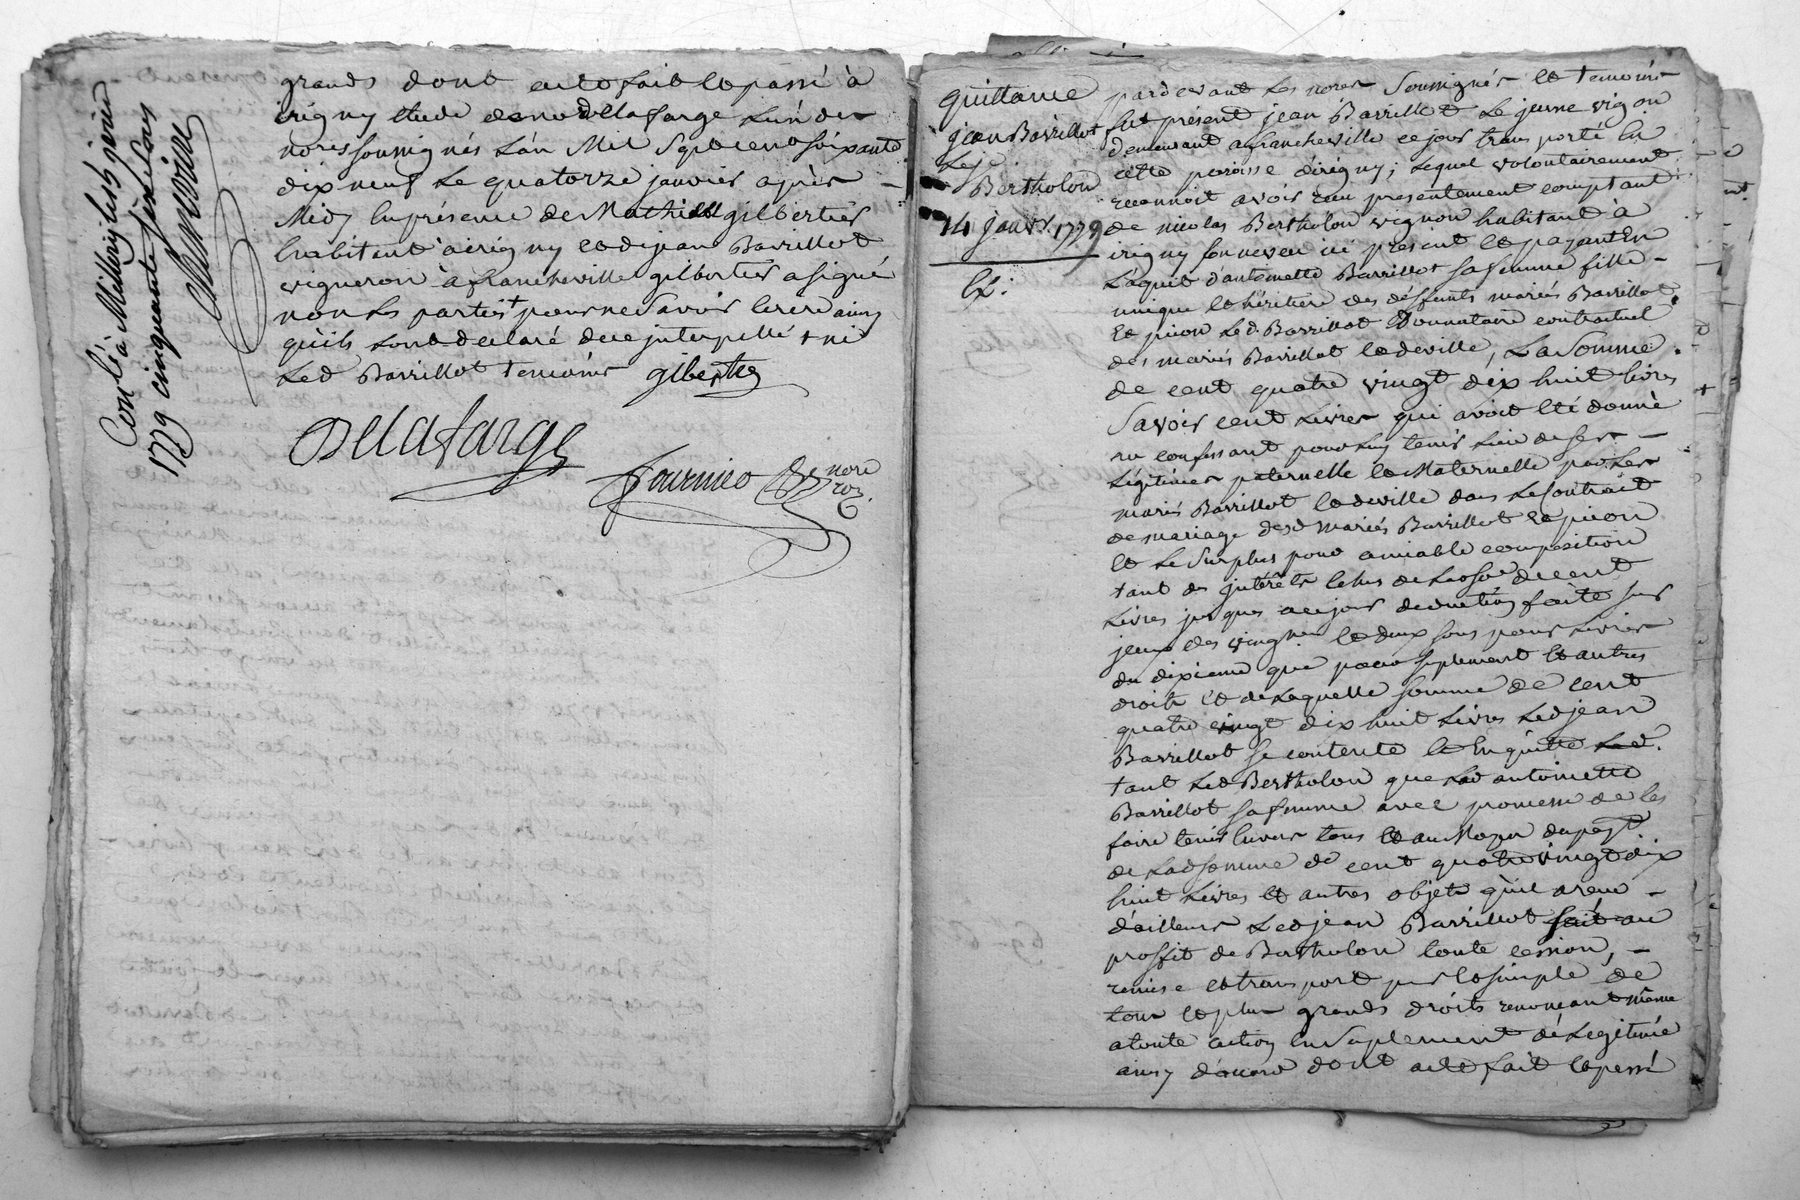 grands dont acte fait et passé à
irigny etude de me delafarge l'un des
nores soussignés L'an Mil Sept cent soixante
dix neuf Le quatorze janvier après –
Midy En présence de Mathieu gilbertier
habitant à irigny et de jean Barrillot
vigneron à francheville gilbertier a signé
non Les parties + pour ne Savoir écrire ainsy
qu'ils L'ont declaré de ce interpellé + ni
Led Barrillot temoins gilbertier
Delafarge
Fournier nore
roy.
Conlé à Millery les 15 janvier
1779 cinquante six sous
quittance
jean Barrillot
Les
Bertholon
14 janvr. 1779
Ex:
pardevant Les nores Soussignés et temoins
fut présent jean Barrillot Le jeune vigon
demeurant a francheville ce jour transporté En
cette paroisse d'irigny; Lequel volontairement
reconnoit avoir reçu presentement comptant
de nicolas Bertholon vignon habitant à
irigny son neveu ici présent et payant En
L'aquit d'antoinette Barrillot sa femme fille –
unique et héritiere des déffunts mariés Barrillot
et pion Led Barrillot Donnataire contractuel
des mariés Barrillot et deville, La Somme
de cent quatre vingt dix huit livres
Savoir cent Livres qui avoit été donné
au confessant pour Luy tenir Lieu de ses –
Légitimes paternelle et Maternelle par Les
mariés Barrillot et deville dans Le Contrait
de mariage desd mariés Barrillot et pion
et Le Surplus pour amiable composition
tant des jntérêts Echus de Lad so.e de cent
Livres jusques a ce jour deduction faite sur
jeux des vingmes et deux sous pour Livres
du dixieme que pour suplement et autres
droits et de Laquelle somme de cent
quatre vingt dix huit Livres Led jean
Barrillot se contente et En quitte Led.
tant Led Bertholon que Lad antoinette
Barrillot sa femme avec promesse de les
faire tenir Envers tous et au Moyen du payt.
de Lad somme de cent quatre vingt dix
huit Livres et autres objets qu'il a reçu –
d'ailleurs Led jean Barrillot fait au
proffit de Bertholon toute cession, –
remise et transport pur et simple de
tous et plus grands droits renonceant même
a toute action En Suplement de Légitime
ainsy d'accord dont acte fait et passé